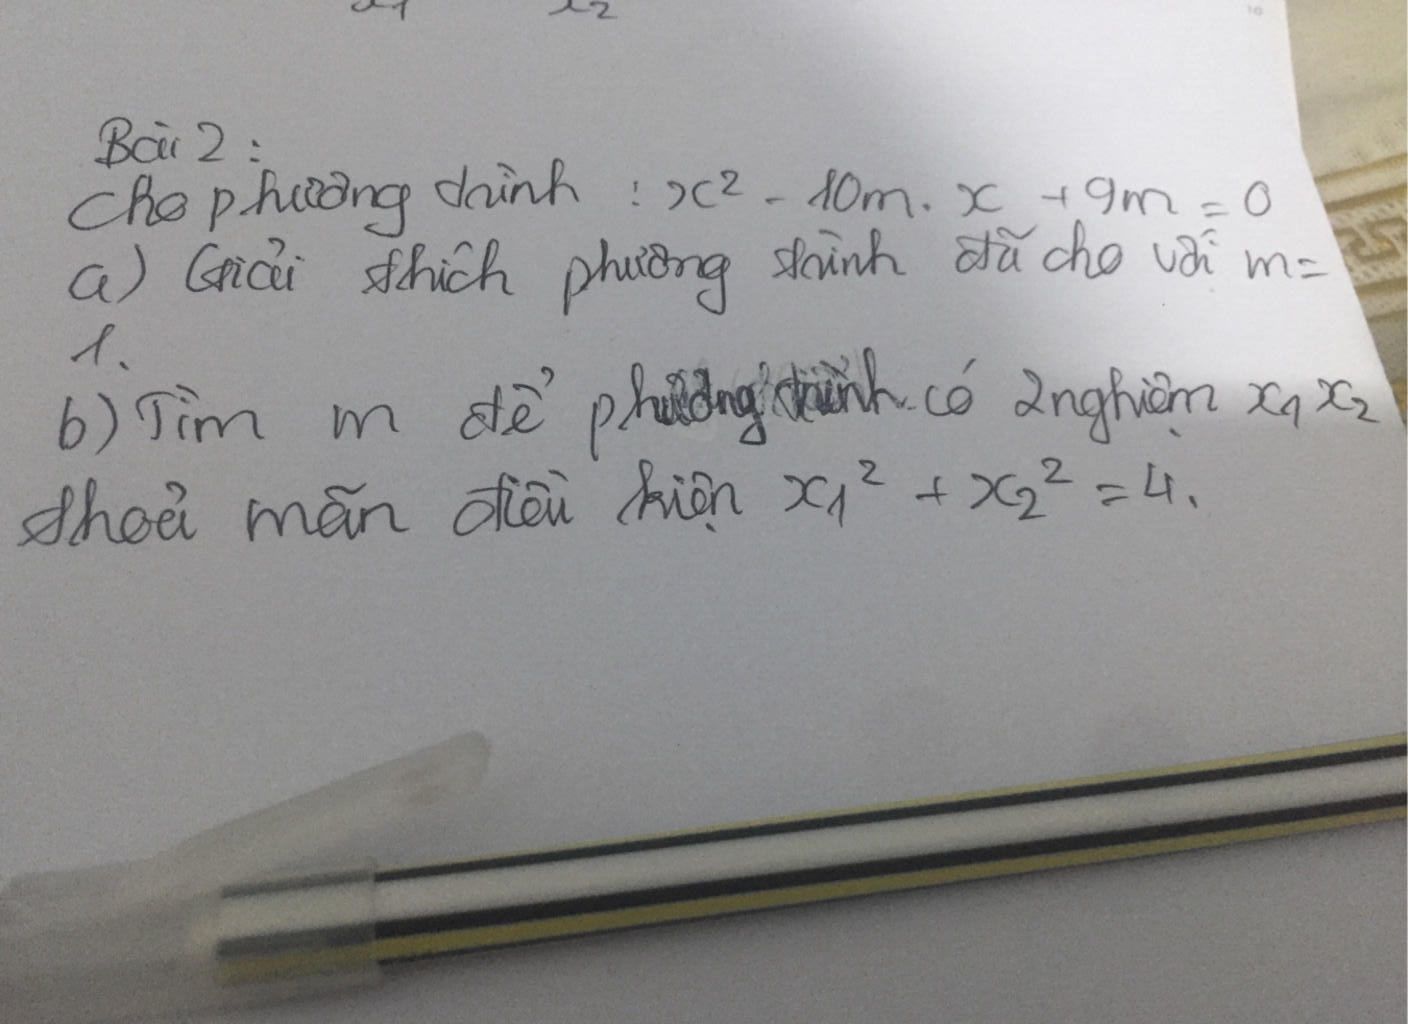 x1 x2
Bài 2:
Cho phương trình : x² - 10m. x + 9m = 0
a) Giải thích phương trình đã cho với m =
1.
b) Tìm m để phương trình có 2 nghiệm x1 x2
thoả mãn điều kiện x1² + x2² = 4.